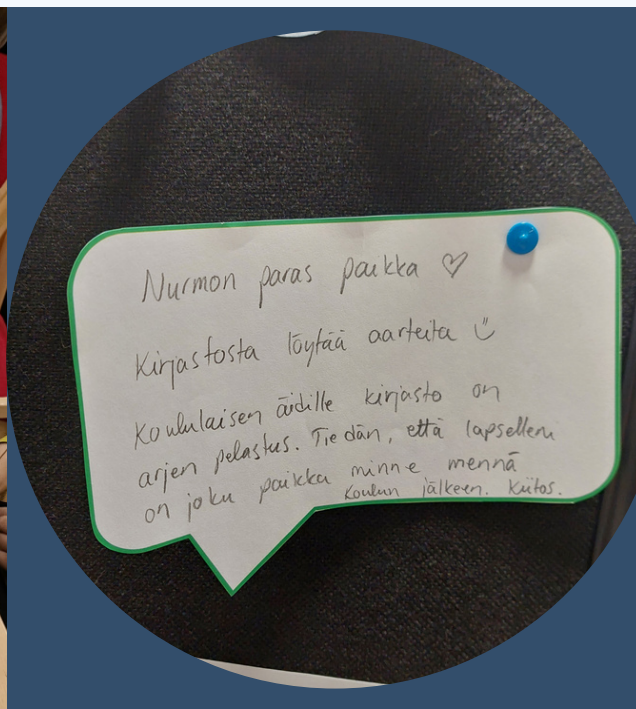 Nurmon paras paikka ♡
Kirjastosta löytää aarteita ☺
Koululaisen äidille kirjasto on
arjen pelastus. Tiedän, että lapselleni
on joku paikka minne mennä
koulun jälkeen. Kiitos.